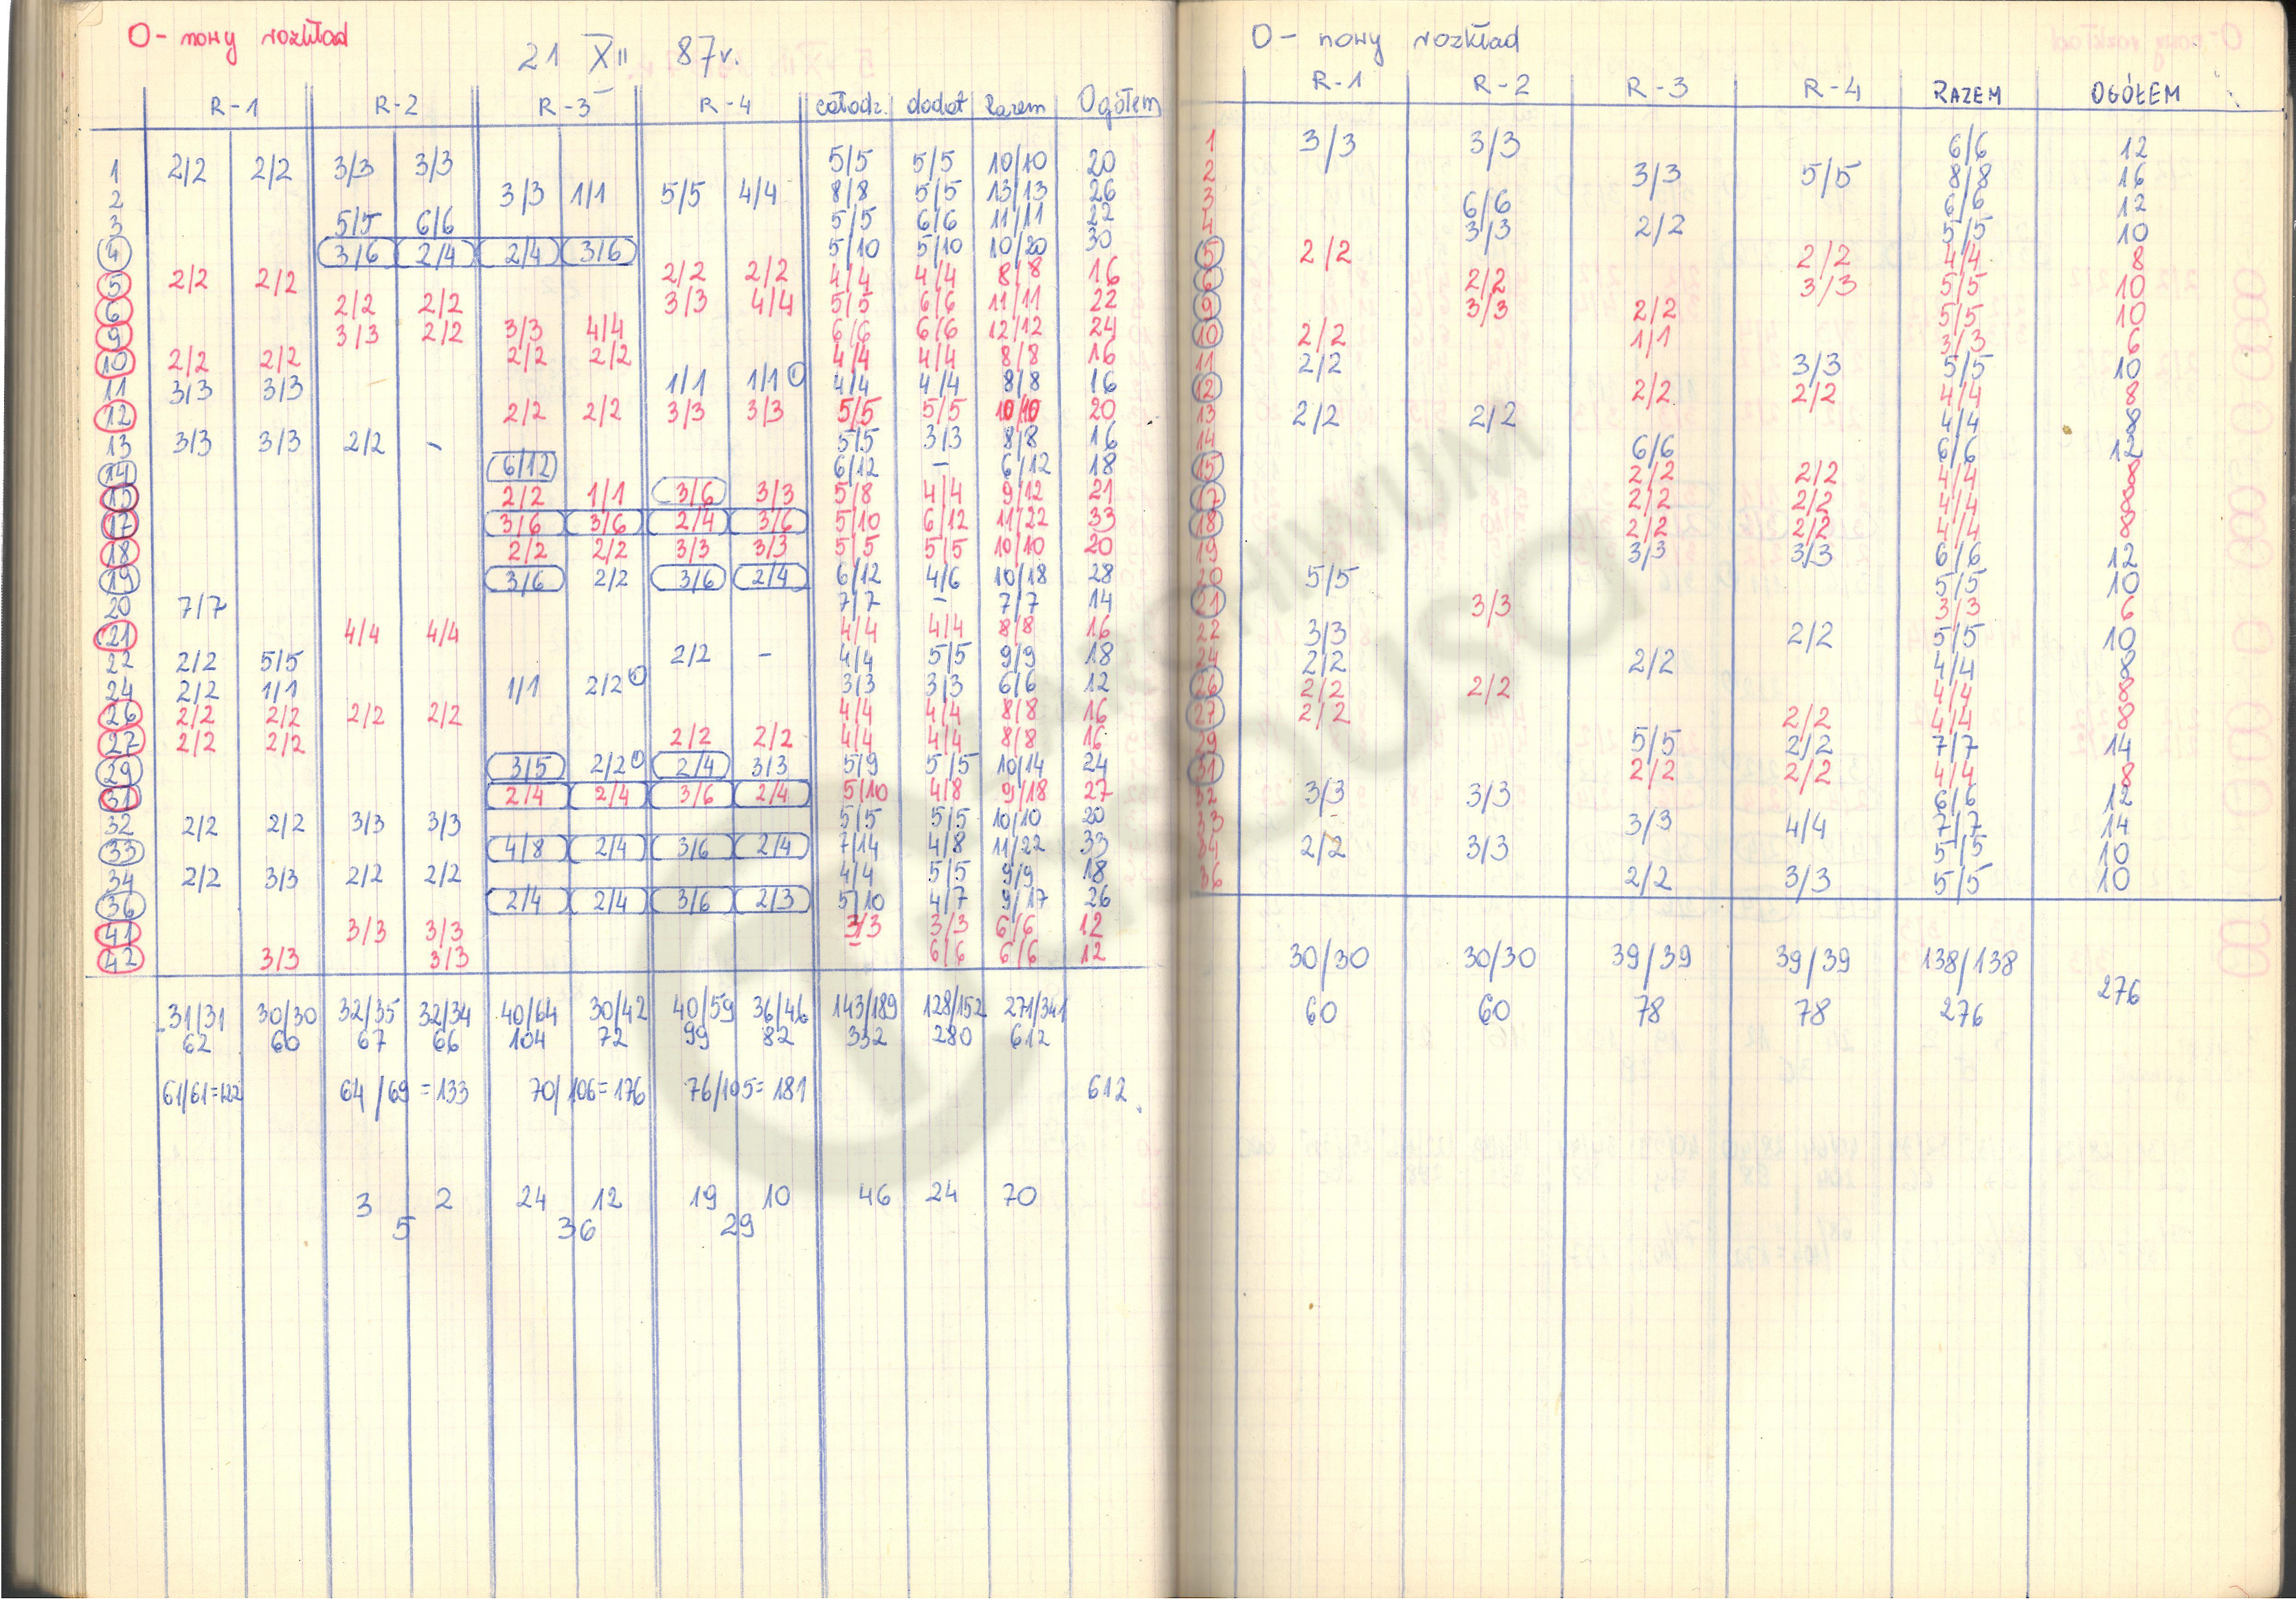 O- nowy rozkład
21 XII 87r.
R-1 R-2 R-3 R-4 całodz. dodat Razem Ogółem
1 2/2 2/2 3/3 3/3 5/5 5/5 10/10 20
2 3/3 1/1 5/5 4/4 8/8 5/5 13/13 26
3 5/5 6/6 5/5 6/6 11/11 22
4 3/6 2/4 2/4 3/6 5/10 5/10 10/20 30
5 2/2 2/2 2/2 2/2 4/4 4/4 8/8 16
6 2/2 2/2 3/3 4/4 5/5 6/6 11/11 22
9 3/3 2/2 3/3 4/4 6/6 6/6 12/12 24
10 2/2 2/2 2/2 2/2 4/4 4/4 8/8 16
11 3/3 3/3 1/1 1/1 4/4 4/4 8/8 16
12 2/2 2/2 3/3 3/3 5/5 5/5 10/10 20
13 3/3 3/3 2/2 - 5/5 3/3 8/8 16
14 6/12 6/12 - 6/12 18
15 2/2 1/1 3/6 3/3 5/8 4/4 9/12 21
17 3/6 3/6 2/4 3/6 5/10 6/12 11/22 33
18 2/2 2/2 3/3 3/3 5/5 5/5 10/10 20
19 3/6 2/2 3/6 2/4 6/12 4/6 10/18 28
20 7/7 7/7 - 7/7 14
21 4/4 4/4 4/4 4/4 8/8 16
22 2/2 5/5 2/2 - 4/4 5/5 9/9 18
24 2/2 1/1 1/1 2/2 3/3 3/3 6/6 12
26 2/2 2/2 2/2 2/2 4/4 4/4 8/8 16
27 2/2 2/2 2/2 2/2 4/4 4/4 8/8 16
29 3/5 2/2 2/4 3/3 5/9 5/5 10/14 24
31 2/4 2/4 3/6 2/4 5/10 4/8 9/18 27
32 2/2 2/2 3/3 3/3 5/5 5/5 10/10 20
33 4/8 2/4 3/6 2/4 7/14 4/8 11/22 33
34 2/2 3/3 2/2 2/2 4/4 5/5 9/9 18
36 2/4 2/4 3/6 2/3 5/10 4/7 9/17 26
41 3/3 3/3 3/3 3/3 6/6 12
42 3/3 3/3 6/6 6/6 12
31/31 30/30 32/35 32/34 40/64 30/42 40/59 36/46 143/189 128/152 271/341
62 60 67 66 104 72 99 82 332 280 612
61/61=122 64/69=133 70/106=176 76/105=181 612
3 2 24 12 19 10 46 24 70
5 36 29
O- nowy rozkład
R-1 R-2 R-3 R-4 RAZEM OGÓŁEM
1 3/3 3/3 6/6 12
2 3/3 5/5 8/8 16
3 6/6 6/6 12
4 3/3 2/2 5/5 10
5 2/2 2/2 4/4 8
6 2/2 3/3 5/5 10
9 3/3 2/2 5/5 10
10 2/2 1/1 3/3 6
11 2/2 3/3 5/5 10
12 2/2 2/2 4/4 8
13 2/2 2/2 4/4 8
14 6/6 6/6 12
15 2/2 2/2 4/4 8
17 2/2 2/2 4/4 8
18 2/2 2/2 4/4 8
19 3/3 3/3 6/6 12
20 5/5 5/5 10
21 3/3 3/3 6
22 3/3 2/2 5/5 10
24 2/2 2/2 4/4 8
26 2/2 2/2 4/4 8
27 2/2 2/2 4/4 8
29 5/5 2/2 7/7 14
31 2/2 2/2 4/4 8
32 3/3 3/3 6/6 12
33 3/3 4/4 7/7 14
34 2/2 3/3 5/5 10
36 2/2 3/3 5/5 10
30/30 30/30 39/39 39/39 138/138
276
60 60 78 78 276